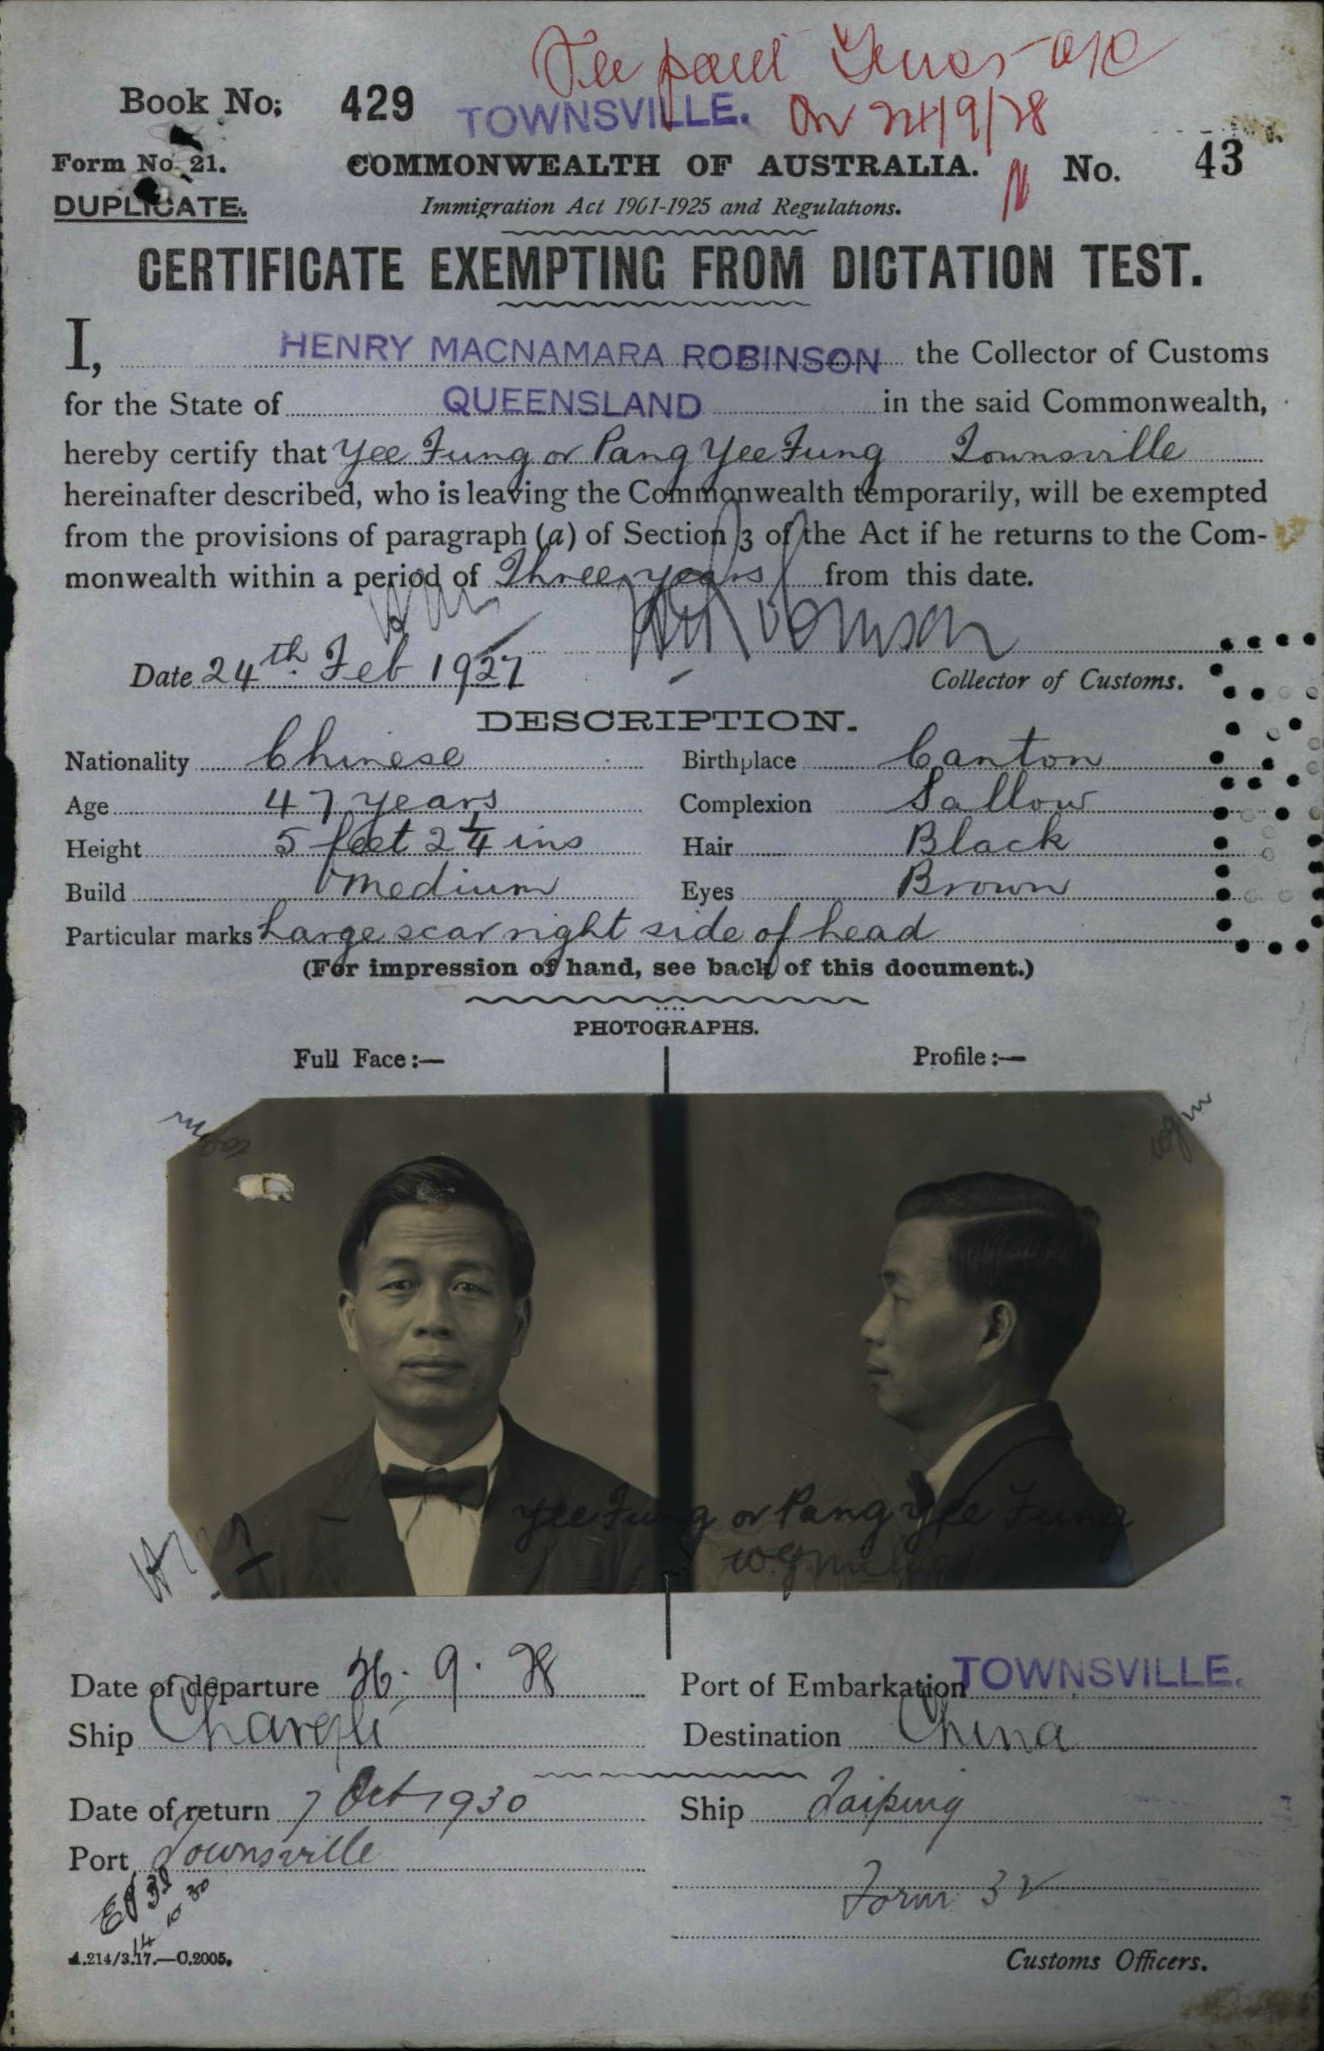 Fee paid
Book No: 429 TOWNSVILLE. On 24/9/28
Form No. 21. COMMONWEALTH OF AUSTRALIA. No. 43
DUPLICATE. Immigration Act 1901-1925 and Regulations.
CERTIFICATE EXEMPTING FROM DICTATION TEST.
I, HENRY MACNAMARA ROBINSON the Collector of Customs
for the State of QUEENSLAND in the said Commonwealth,
hereby certify that Yee Fung or Pang Yee Fung Townsville
hereinafter described, who is leaving the Commonwealth temporarily, will be exempted
from the provisions of paragraph (a) of Section 3 of the Act if he returns to the Com-
monwealth within a period of Three years from this date.
HMRobinson
Date 24th Feb 1927 Collector of Customs.
DESCRIPTION.
Nationality Chinese Birthplace Canton
Age 47 years Complexion Sallow
Height 5 feet 2 1/4 ins Hair Black
Build Medium Eyes Brown
Particular marks Large scar right side of head
(For impression of hand, see back of this document.)
PHOTOGRAPHS.
Full Face:— Profile:—
Yee Fung or Pang Yee Fung
Date of departure 26. 9. 28 Port of Embarkation TOWNSVILLE.
Ship Destination China
Date of return 7 Oct 1930 Ship Taiping
Port Townsville
Form 32
14 10 30
A.214/3.17.—C.2005. Customs Officers.